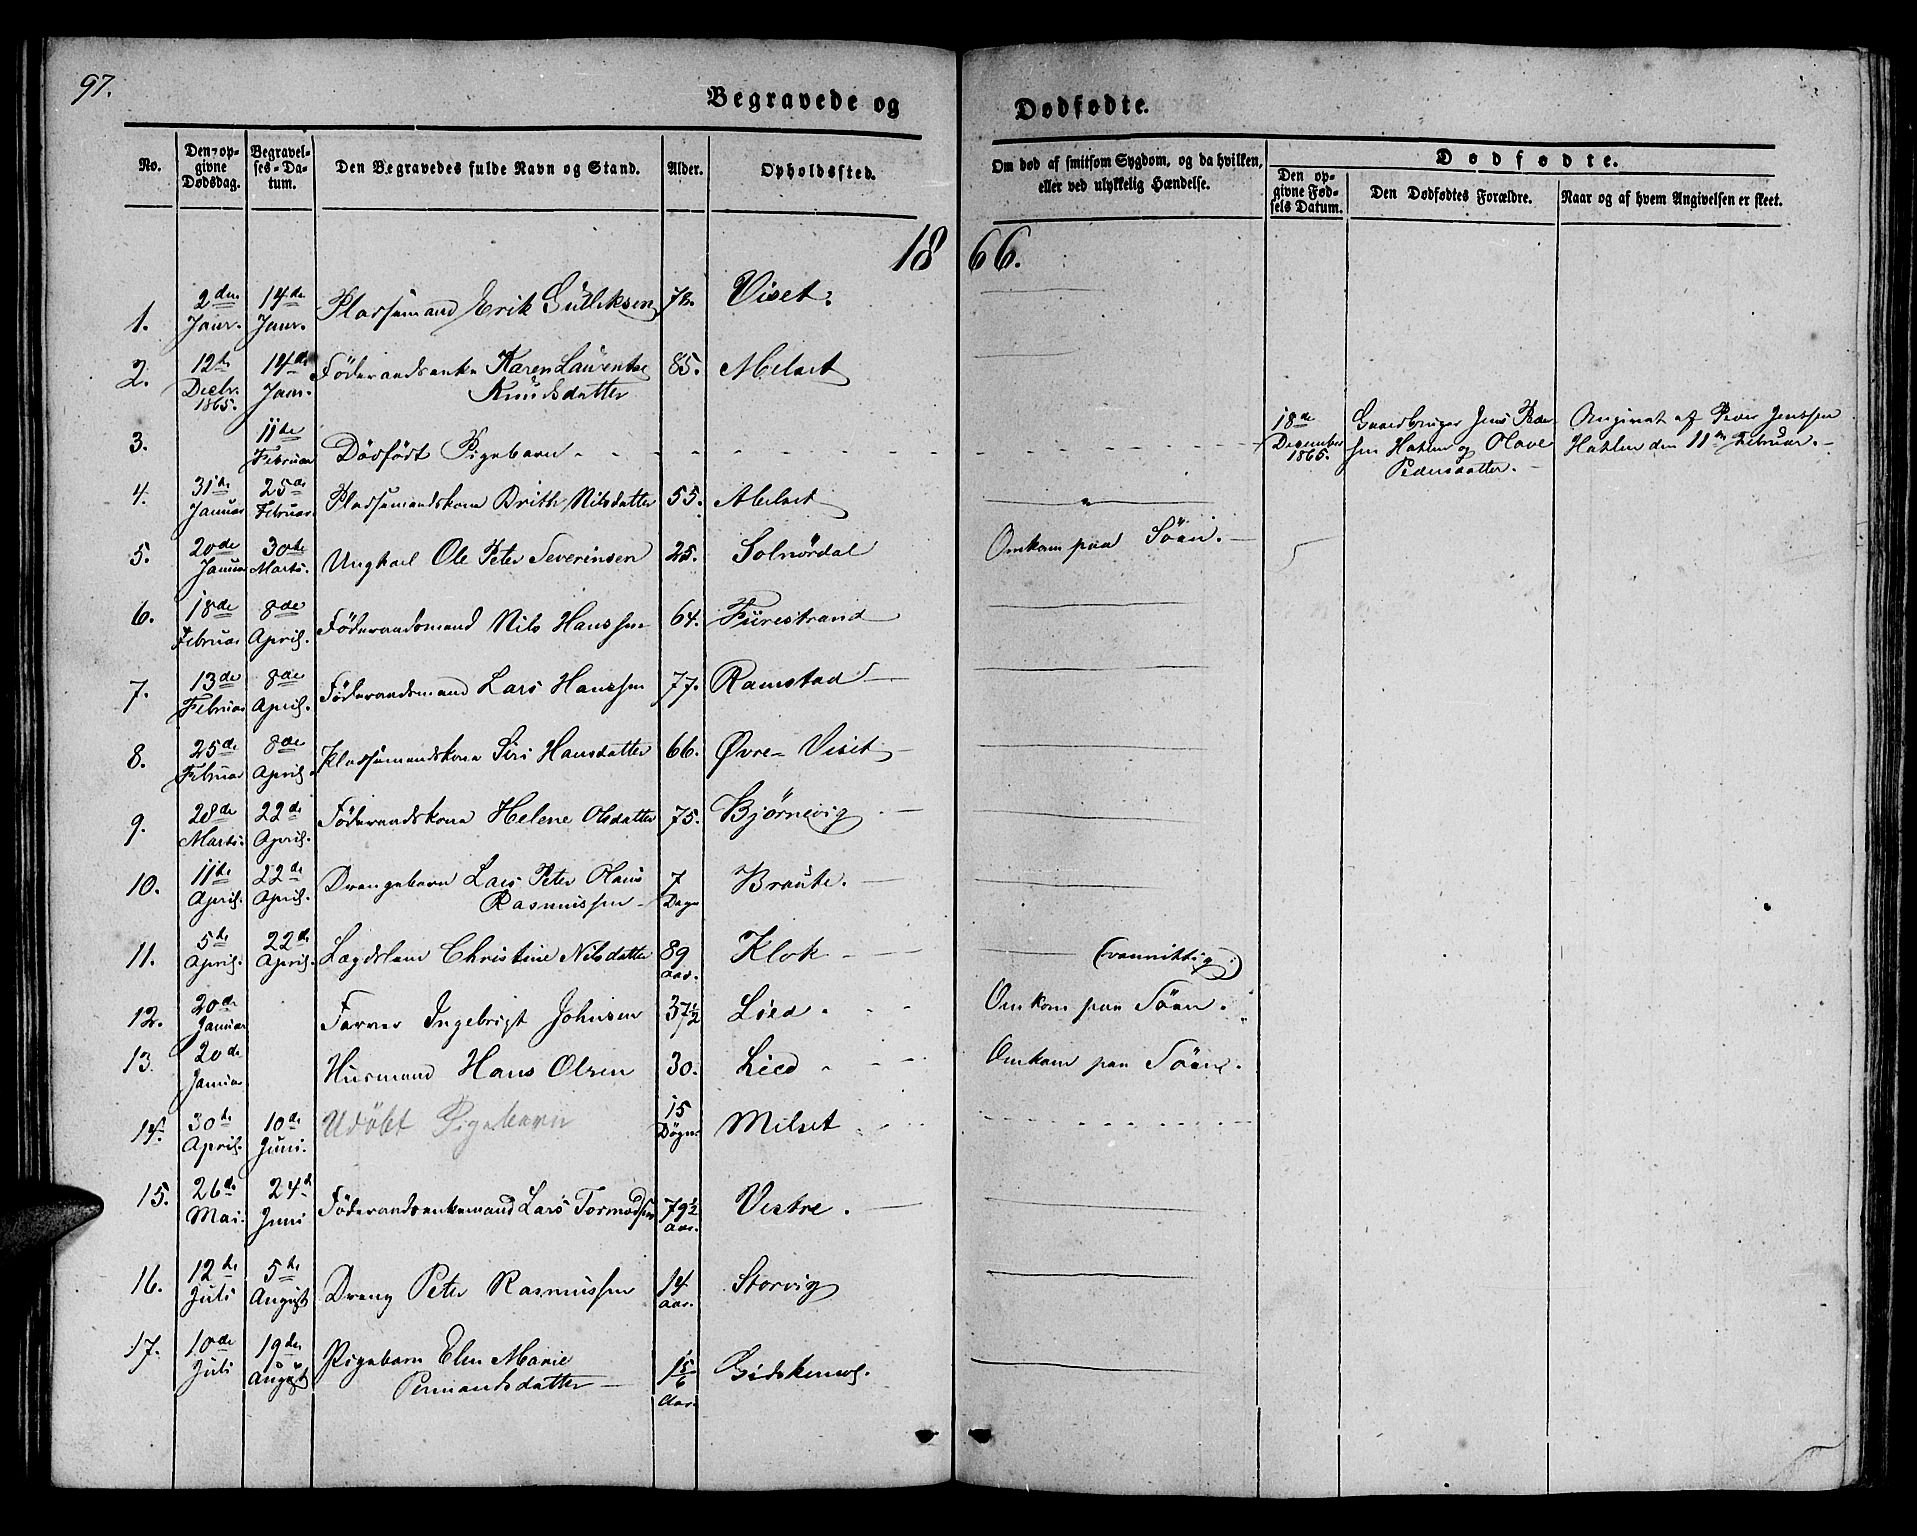 97.
Begravede og Dødfødte.
No.
Den opgivne Dødsdag.
Begravelses-Datum.
Den Begravedes fulde Navn og Stand.
Alder.
Opholdssted.
Om død af smitsom Sygdom, og da hvilken,
eller ved ulykkelig Hændelse.
Dødfødte.
Den opgivne Fødsels Datum.
Den Dødfødtes Forældre.
Naar og af hvem Angivelsen er skeet.
1866.
1. 2den Januar. 14de Januar. Pladsemand Erik Gulliksen 72. Viset.
2. 12te Decbr. 1865. 14de Januar. Føderaadsenke Karen Laurentse
Knudsdatter 85. Melset
3. 11te Februar Dødfødt Pigebarn 18de December 1865. Gaardbruger Jens Peder
sen Hatlen og Olave
Pedersdatter. Angivet af Peder Jenssen
Hatlen den 11te Februar.
4. 31te Januar 25de Februar. Pladsemandskone Brithe Nilsdatter 55. Melset
5. 20de Januar 30te Marts. Ungkarl Ole Peter Severinsen 25. Solnørdal Omkom paa Søen.
6. 18de Februar 8de April. Føderaadsmand Nils Hanssen 64. Fürestrand
7. 13de Februar 8de April. Føderaadsmand Lars Hanssen 77. Ramstad
8. 25de Februar 8de April. Pladsemandskone Siri Hansdatter 66. Øvre-Viset
9. 28de Marts. 22de April. Føderaadskone Helene Olsdatter 75. Bjørnevig
10. 11te April. 22de April. Drengebarn Lars Peter Olaus
Rasmussen 7 Dage Braute.
11. 5te April. 22de April. Lægdslem Christine Nilsdatter 89 aar. Klok (vanvittig)
12. 20de Januar Farver Ingebrigt Johnsen 37½ Lied. Omkom paa Søen.
13. 20de Januar Husmand Hans Olsen 30. Lied Omkom paa Søen.
14. 30te April. 10de Juni. Udøbt Pigebarn 15 Døgn. Melset
15. 26de Mai. 24de Juni Føderaadsenkemand Lars Tormodsen 79½ aar. Vestre.
16. 12te Juli 5te August Dreng Peter Rasmussen 14 aar. Storvig
17. 10de Juli 19de August Pigebarn Elen Marie
Permandsdatter 1 5/6 Aar. Gidskemo.